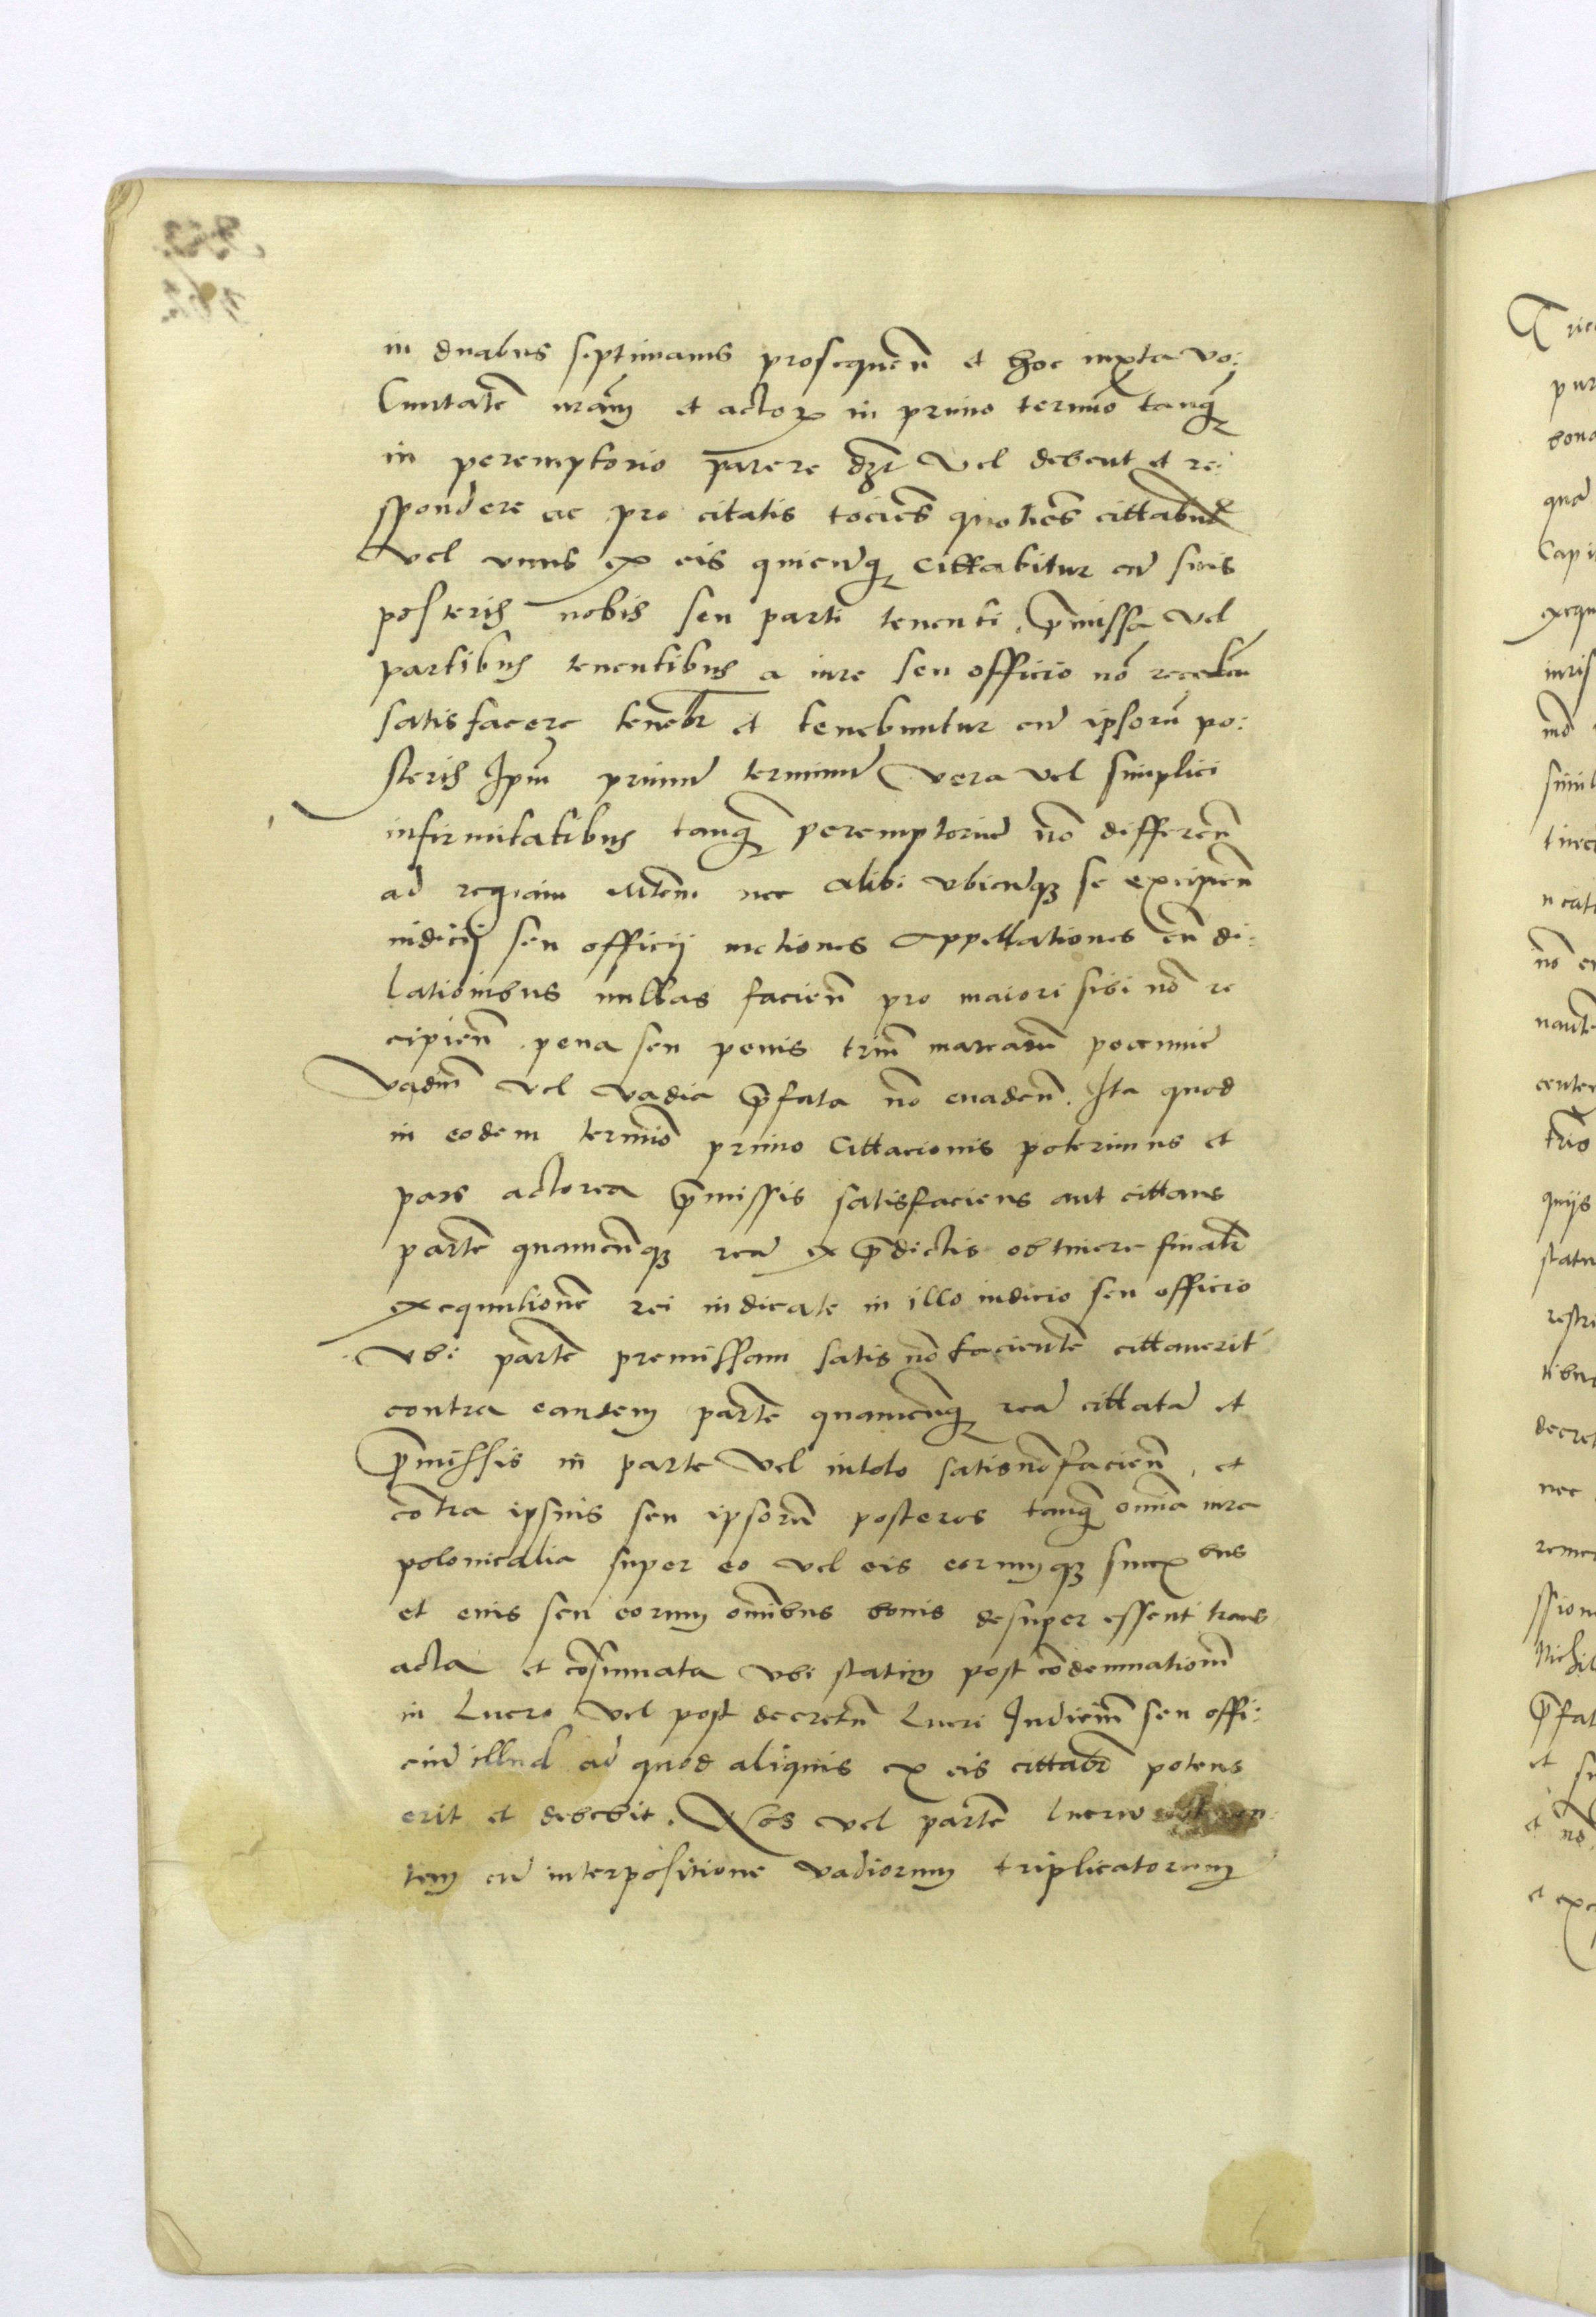 in duabus septimanis prosequen̄ et hoc iuxta vo:
luntatē nrām et actoꝝ in primo termīo tanqꝫ
in peremptorio parere dꝫt vel debent et re:
spondere ac pro citatis tociēs quotiēs cittabūt
vel unus ex eis quicūqꝫ cittabitur cū suis
posteris nobis seu parti tenenti p̄missa vel
partibus tenentibus a iure seu officio nō receden̄
satisfacere tenebr̄ et tenebuntur cū ipsorū po:
steris Ipm̄ primū terminū vera vel simplici
infirmitatibus tanqꝫ peremptoriū nō differen̄
ad regiam Mtem̄ nec alibi ubicūqꝫ se excipien̄
iudicij seu officij motiones appellationes cū di:
lationibus nullas facien̄ pro maiori sibi nō re
cipien̄ pena seu penis triū marcarū pecunie
vadiū vel vadia p̄fata nō evaden̄. Ita quod
in eodem termīo primo cittacionis poterimus et
pars actorea p̄missis satisfaciens aut cittans
partē quamcūqꝫ reā ex p̄dictis obtinere finalē
exequutionē rei iudicate in illo iudicio seu officio
ubi partē premissam satis nō facientē cittaverit
contra eandem partē quamcūqꝫ reā cittatā et
p̄missis in parte vel intoto satisnōfacien̄, et
cōtra ipsius seu ipsorū posteros tanqꝫ omnia iura
polonicalia super eo vel eis eorumqꝫ succꝫbus
et eius seu eorum om̄ibus bonis desuper essent trans
acta et cōsumata ubi statim post cōdemnationem
in Lucro vel post decretū Lucri Iudiciū seu offi:
ciū illud ad quod aliquis ex eis cittabr̄ potens
erit et debebit. Nos vel partē lucrū
tem cū interpositione vadiorum triplicatorum